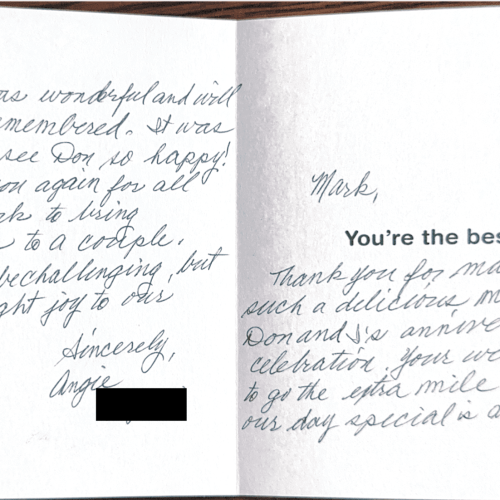 as wonderful and will
emembered. It was
see Don so happy!
ou again for all
k to bring
to a couple.
be challenging, but
ght joy to our
Sincerely,
Angie
Mark,
You're the bes
Thank you for ma
such a delicious m
Don and J's annive
celebration. Your w
to go the extra mile
our day special is a